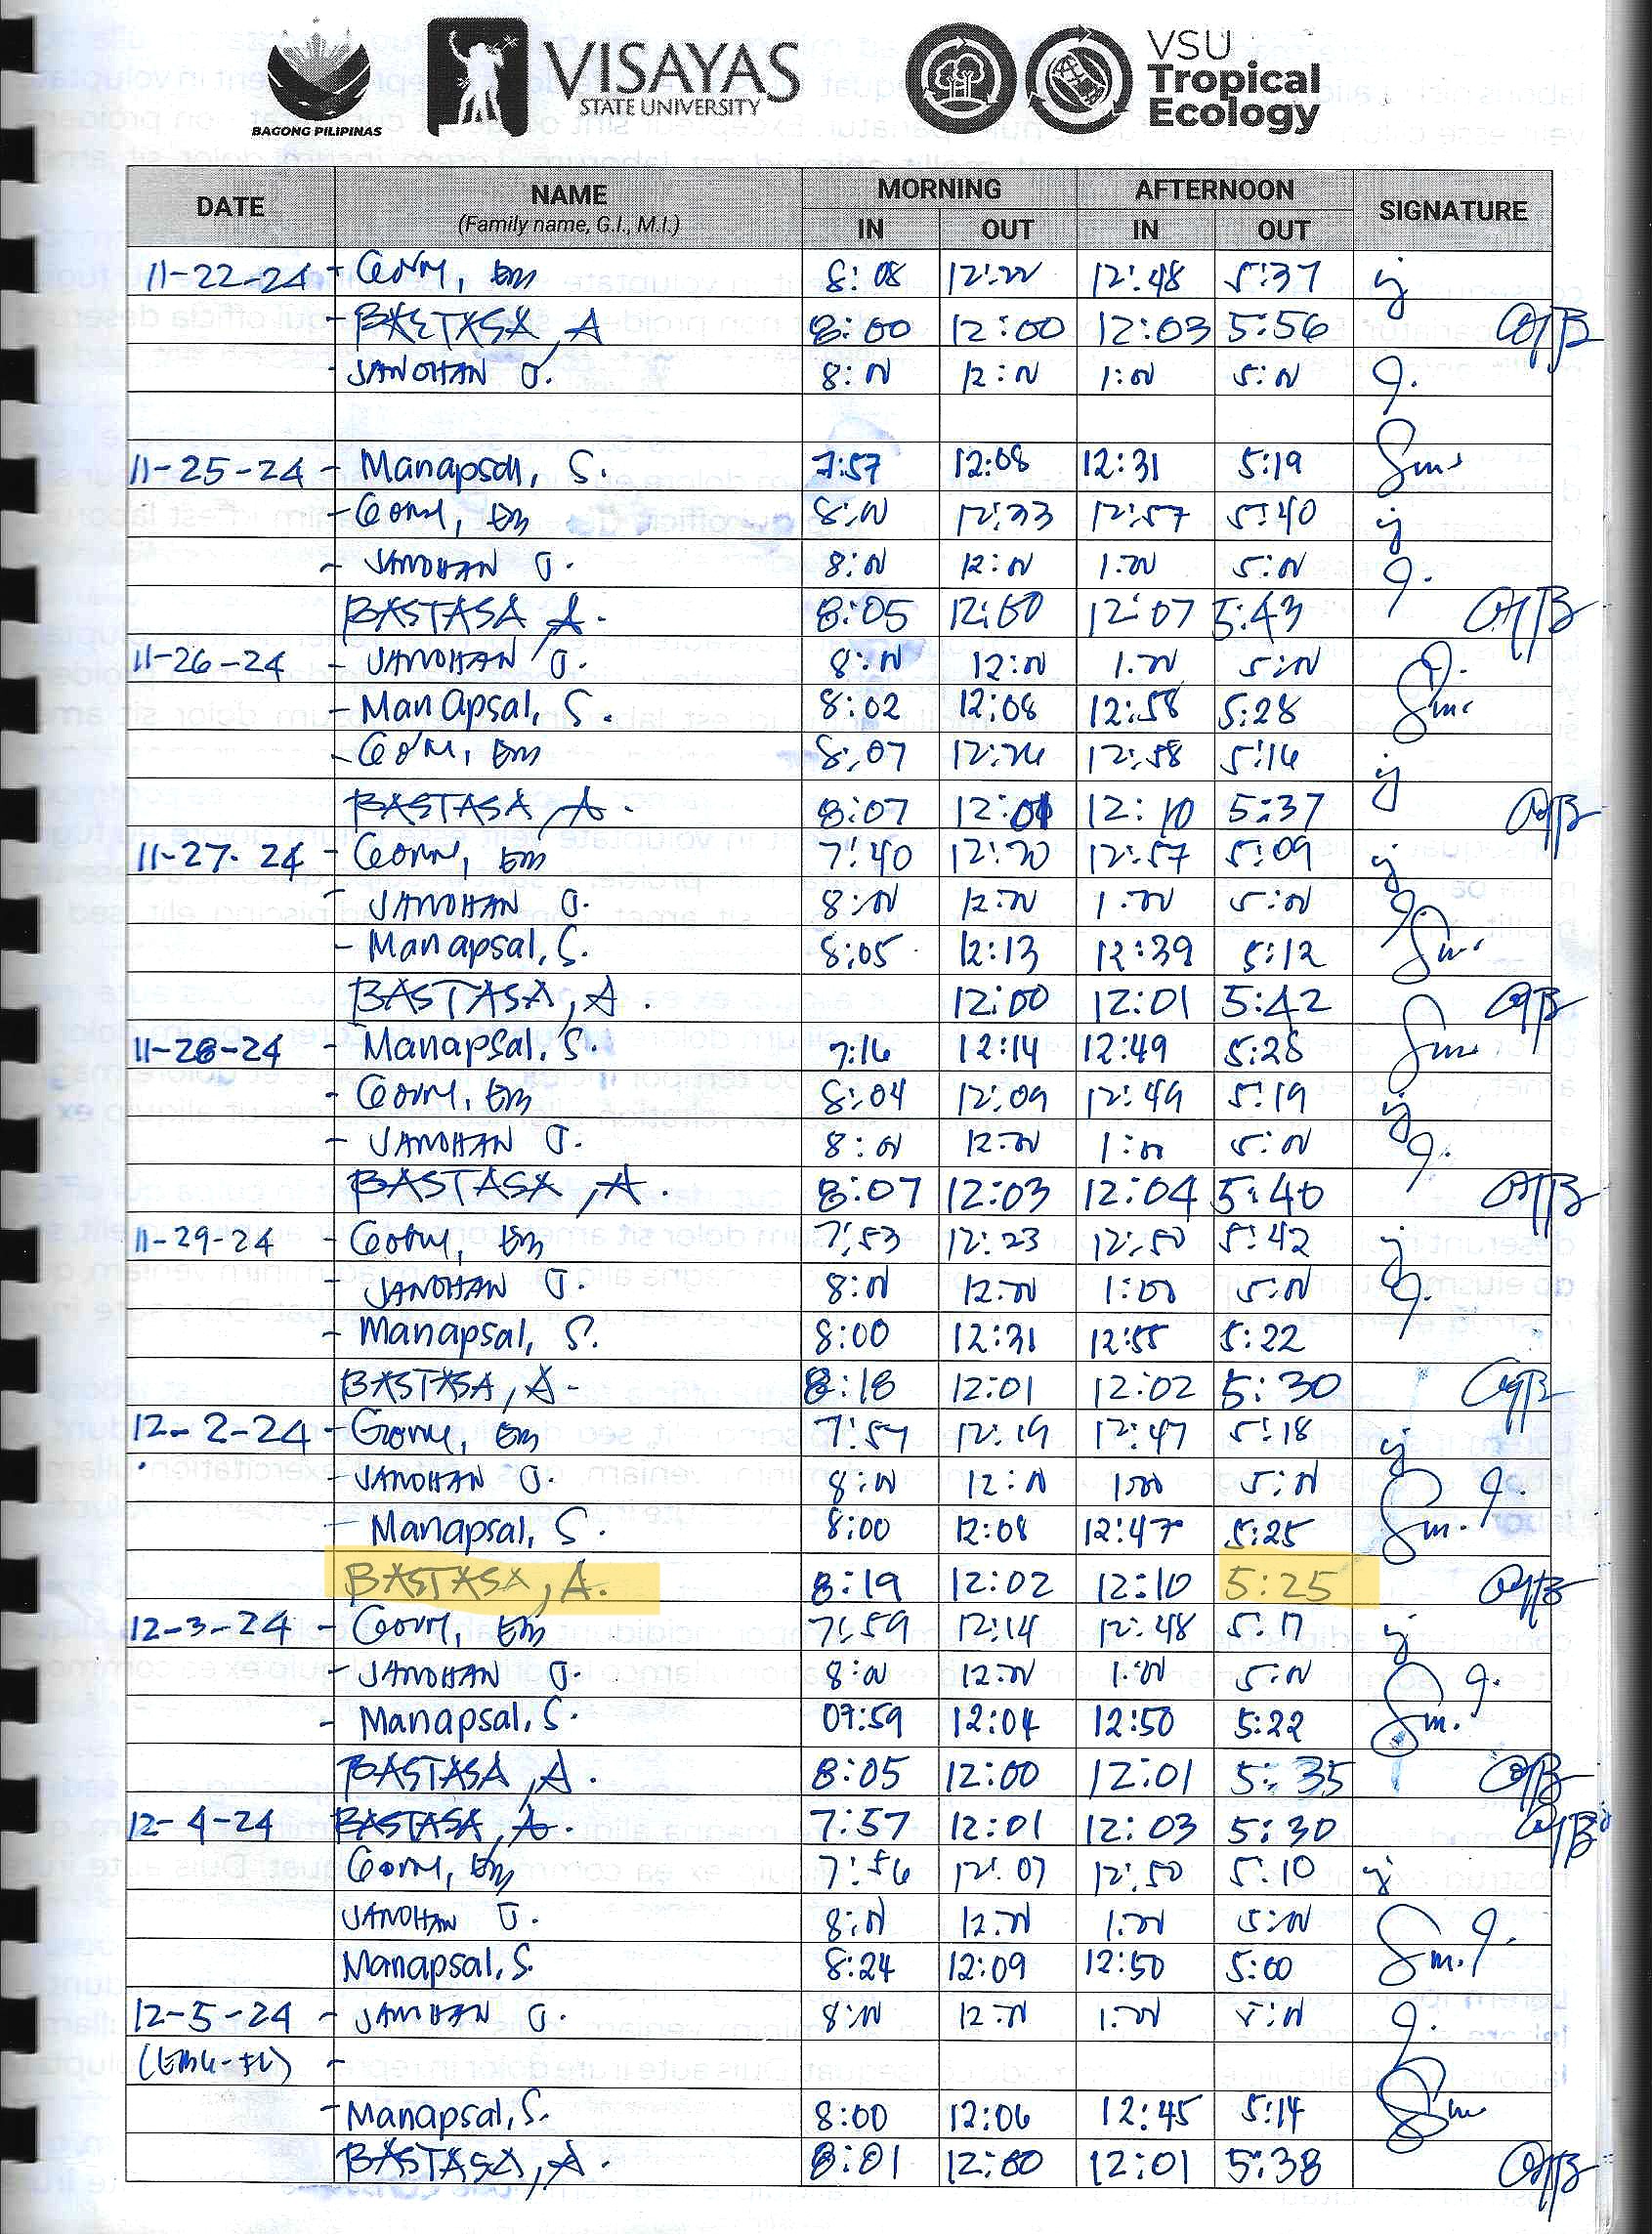 BAGONG PILIPINAS
VISAYAS
STATE UNIVERSITY
VSU
Tropical
Ecology
DATE NAME MORNING AFTERNOON SIGNATURE
(Family name, G.I., M.I.) IN OUT IN OUT
11-22-24 - Em 8:08 12:22 12:48 5:37
- BASTASA, A 8:00 12:00 12:03 5:56
- JANOHAN J. 8:00 12:00 1:00 5:00
11-25-24 - Manapsal, S. 7:57 12:08 12:31 5:19
- Em 8:00 12:33 12:57 5:40
- JANOHAN J. 8:00 12:00 1:00 5:00
BASTASA A. 8:05 12:00 12:07 5:43
11-26-24 - JANOHAN J. 8:00 12:00 1:00 5:00
- Manapsal, S. 8:02 12:08 12:58 5:28
- Em 8:07 12:26 12:58 5:16
BASTASA, A. 8:07 12:01 12:10 5:37
11-27-24 - Em 7:40 12:20 12:57 5:09
- JANOHAN J. 8:00 12:00 1:00 5:00
- Manapsal, S. 8:05 12:13 12:39 5:12
BASTASA, A. 12:00 12:01 5:42
11-28-24 - Manapsal, S. 7:16 12:14 12:49 5:28
- Em 8:04 12:09 12:49 5:19
- JANOHAN J. 8:00 12:00 1:00 5:00
BASTASA, A. 8:07 12:03 12:04 5:40
11-29-24 - Em 7:53 12:23 12:50 5:42
- JANOHAN J. 8:00 12:00 1:00 5:00
- Manapsal, S. 8:00 12:31 12:55 5:22
BASTASA, A. 8:18 12:01 12:02 5:30
12-2-24 - Em 7:57 12:19 12:47 5:18
- JANOHAN J. 8:00 12:00 1:00 5:00
- Manapsal, S. 8:00 12:08 12:47 5:25
BASTASA, A. 8:19 12:02 12:10 5:25
12-3-24 - Em 7:59 12:14 12:48 5:17
- JANOHAN J. 8:00 12:00 1:00 5:00
- Manapsal, S. 07:59 12:04 12:50 5:22
BASTASA, A. 8:05 12:00 12:01 5:35
12-4-24 BASTASA, A. 7:57 12:01 12:03 5:30
Em 7:56 12:07 12:50 5:10
JANOHAN J. 8:00 12:00 1:00 5:00
Manapsal, S. 8:24 12:09 12:50 5:00
12-5-24 - JANOHAN J. 8:00 12:00 1:00 5:00
- Manapsal, S. 8:00 12:06 12:45 5:14
BASTASA, A. 8:01 12:00 12:01 5:38